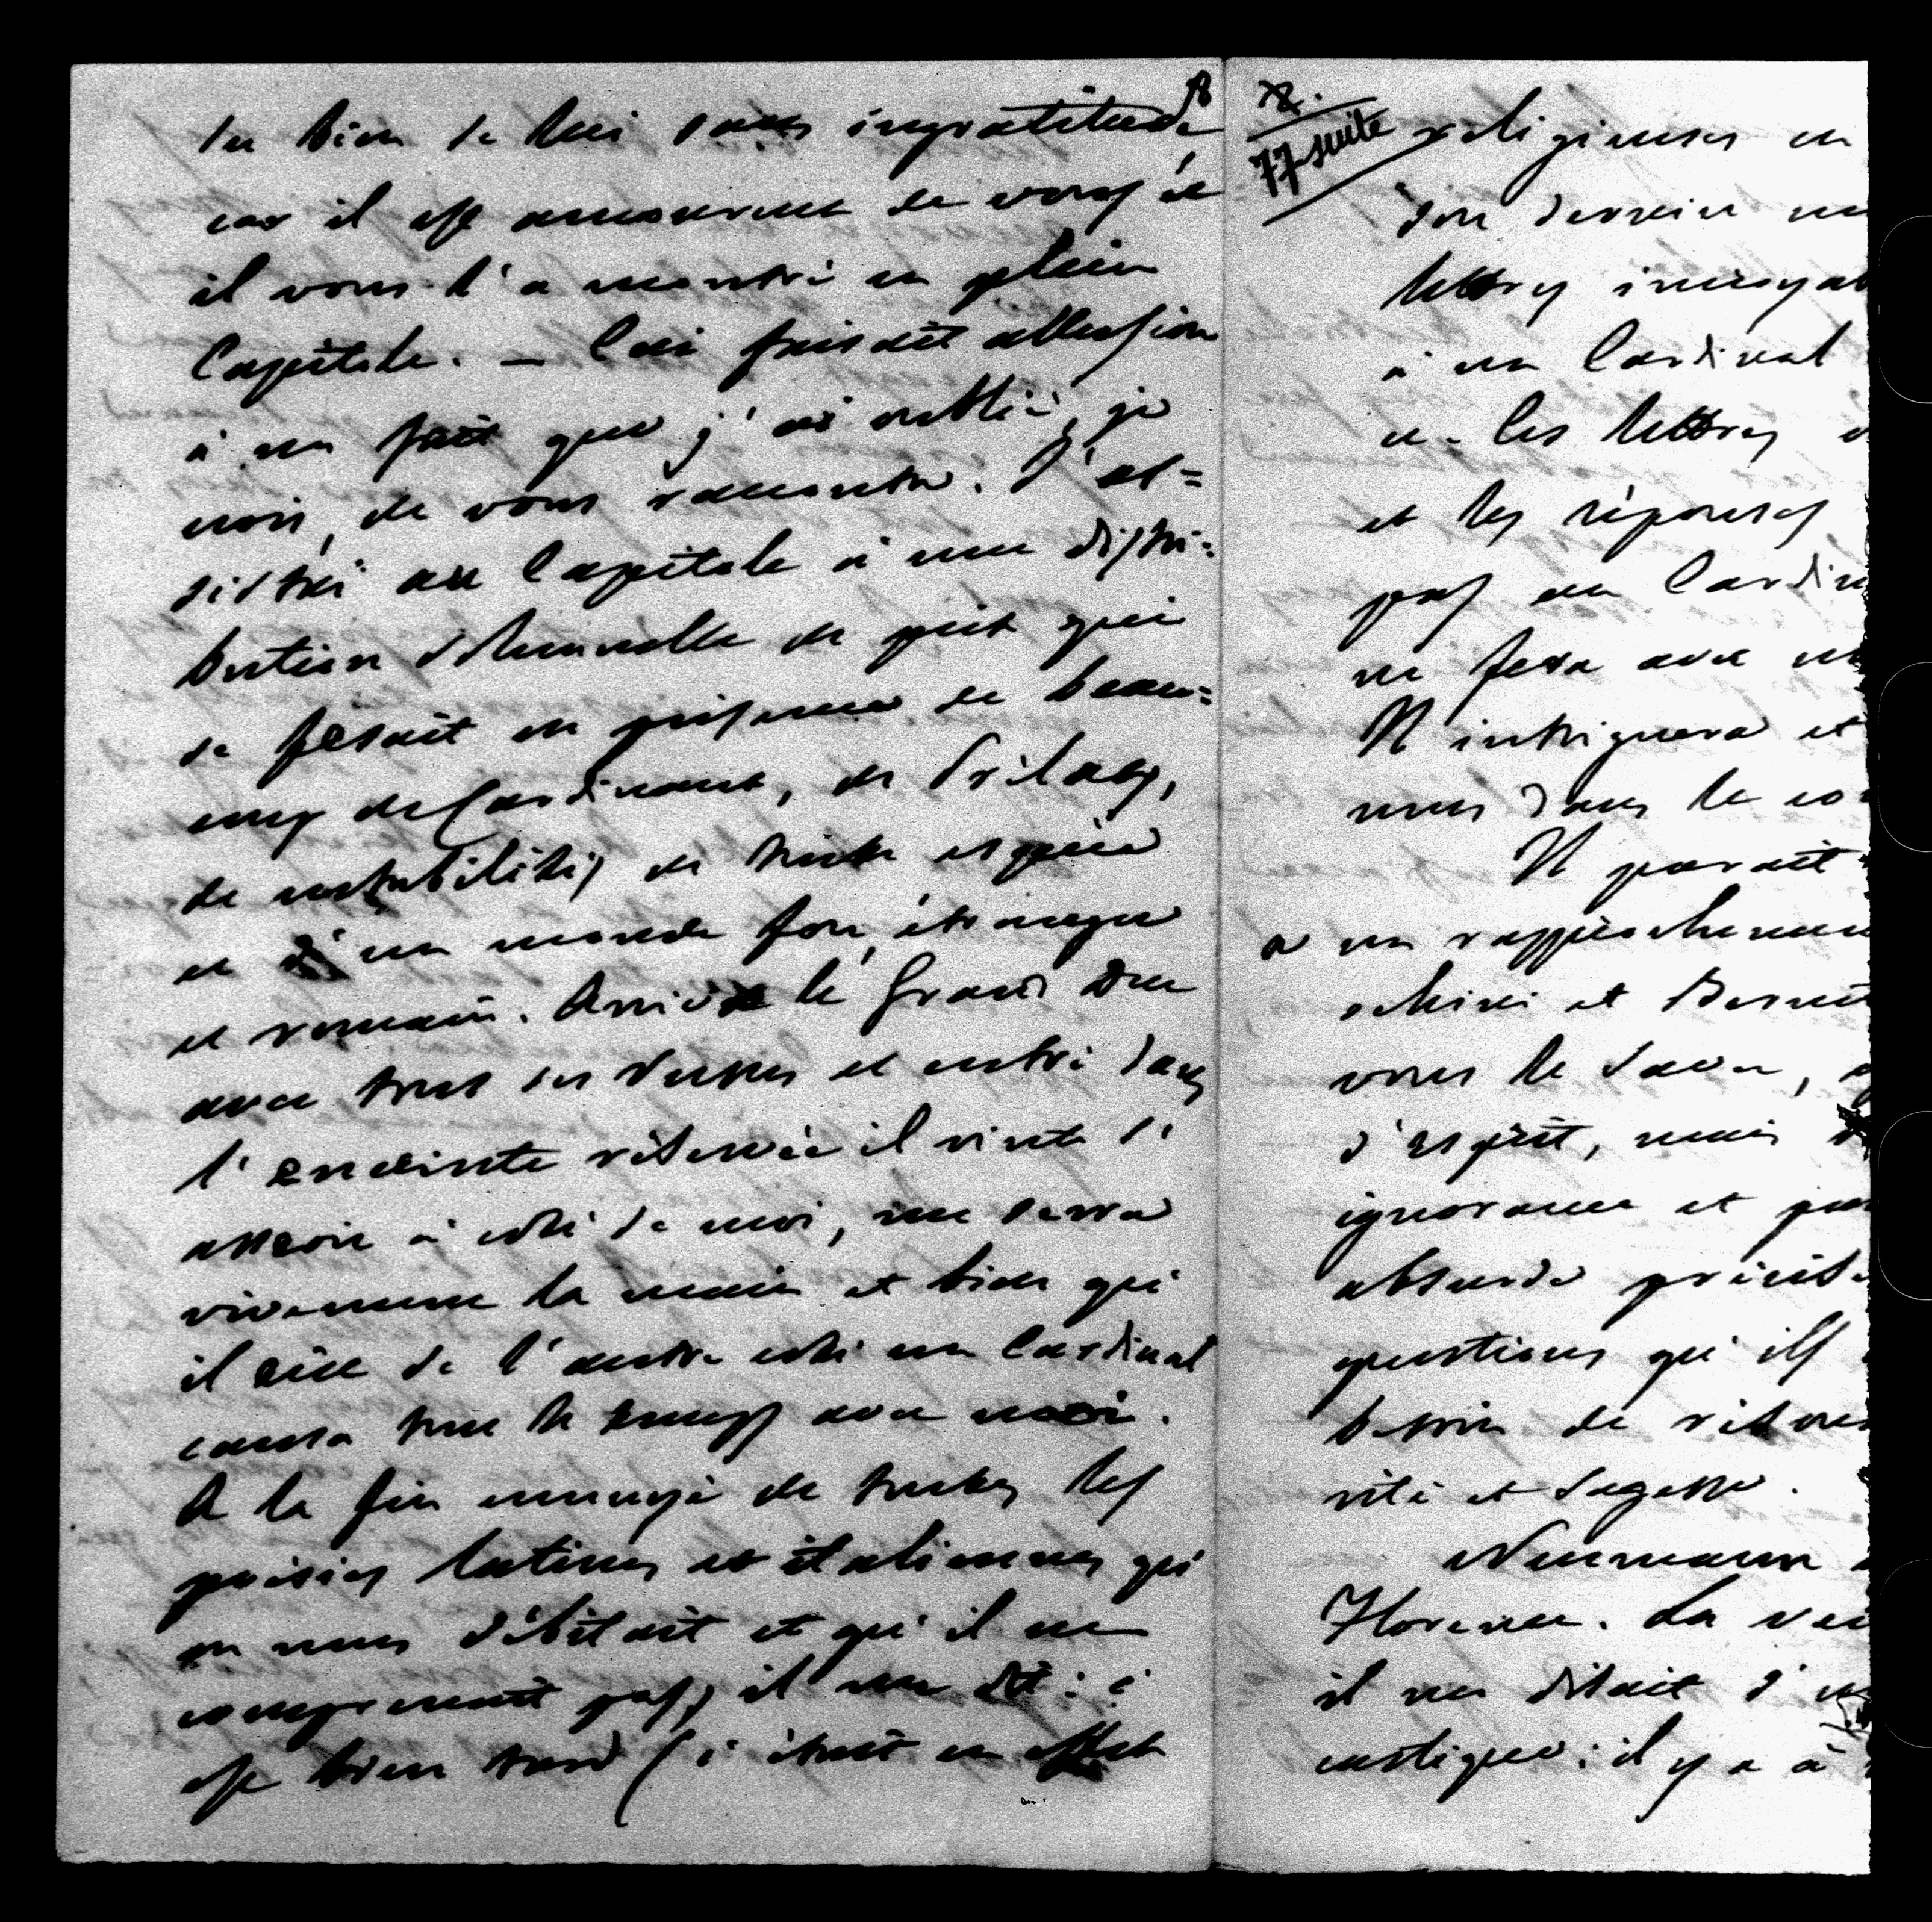 du bien de lui sans ingratitude
car il est amoureux de vous et
il vous l'a montré en plein
Capitole. — Ceci faisait allusion
à un fait que j'ai oublié, je
crois, de vous raconter. J'as=
sistai au Capitole à une distri=
bution solennelle de prix qui
se fesait en présence de beau=
coup de Cardinaux, de Prélats,
de notabilités de toute espèce
et d'un monde fou, étranger
et romain. Arrive le Grand Duc
avec tous ses Russes et entré dans
l'enceinte réservée il vint s'
asseoir à côté de moi, me serra
vivement la main et bien qu'
il eût de l'autre côté un Cardinal
causa tout le temps avec moi.
A la fin ennuyé de toutes les
poésies latines et italiennes qu'
on nous débitait et qu'il ne
comprenait pas, il me dit: c'
est bien tard (c'était en effet
8
77 suite
religieuses en
son dernier
lettres incroyab
à un Cardinal
Les lettres
et les réponses
pas un Cardin
ne fera avec
Il intriguera et
nous dans le co
Il paraît
a un rapprochement
schini et Bernet
vous le savez,
d'esprit, mais
ignorance et
absurde précisé
questions qu'ils
besoin de réserve
rité et sagesse.
Neumann
Florence. La vei
il me disait d'un
castique: il y a à